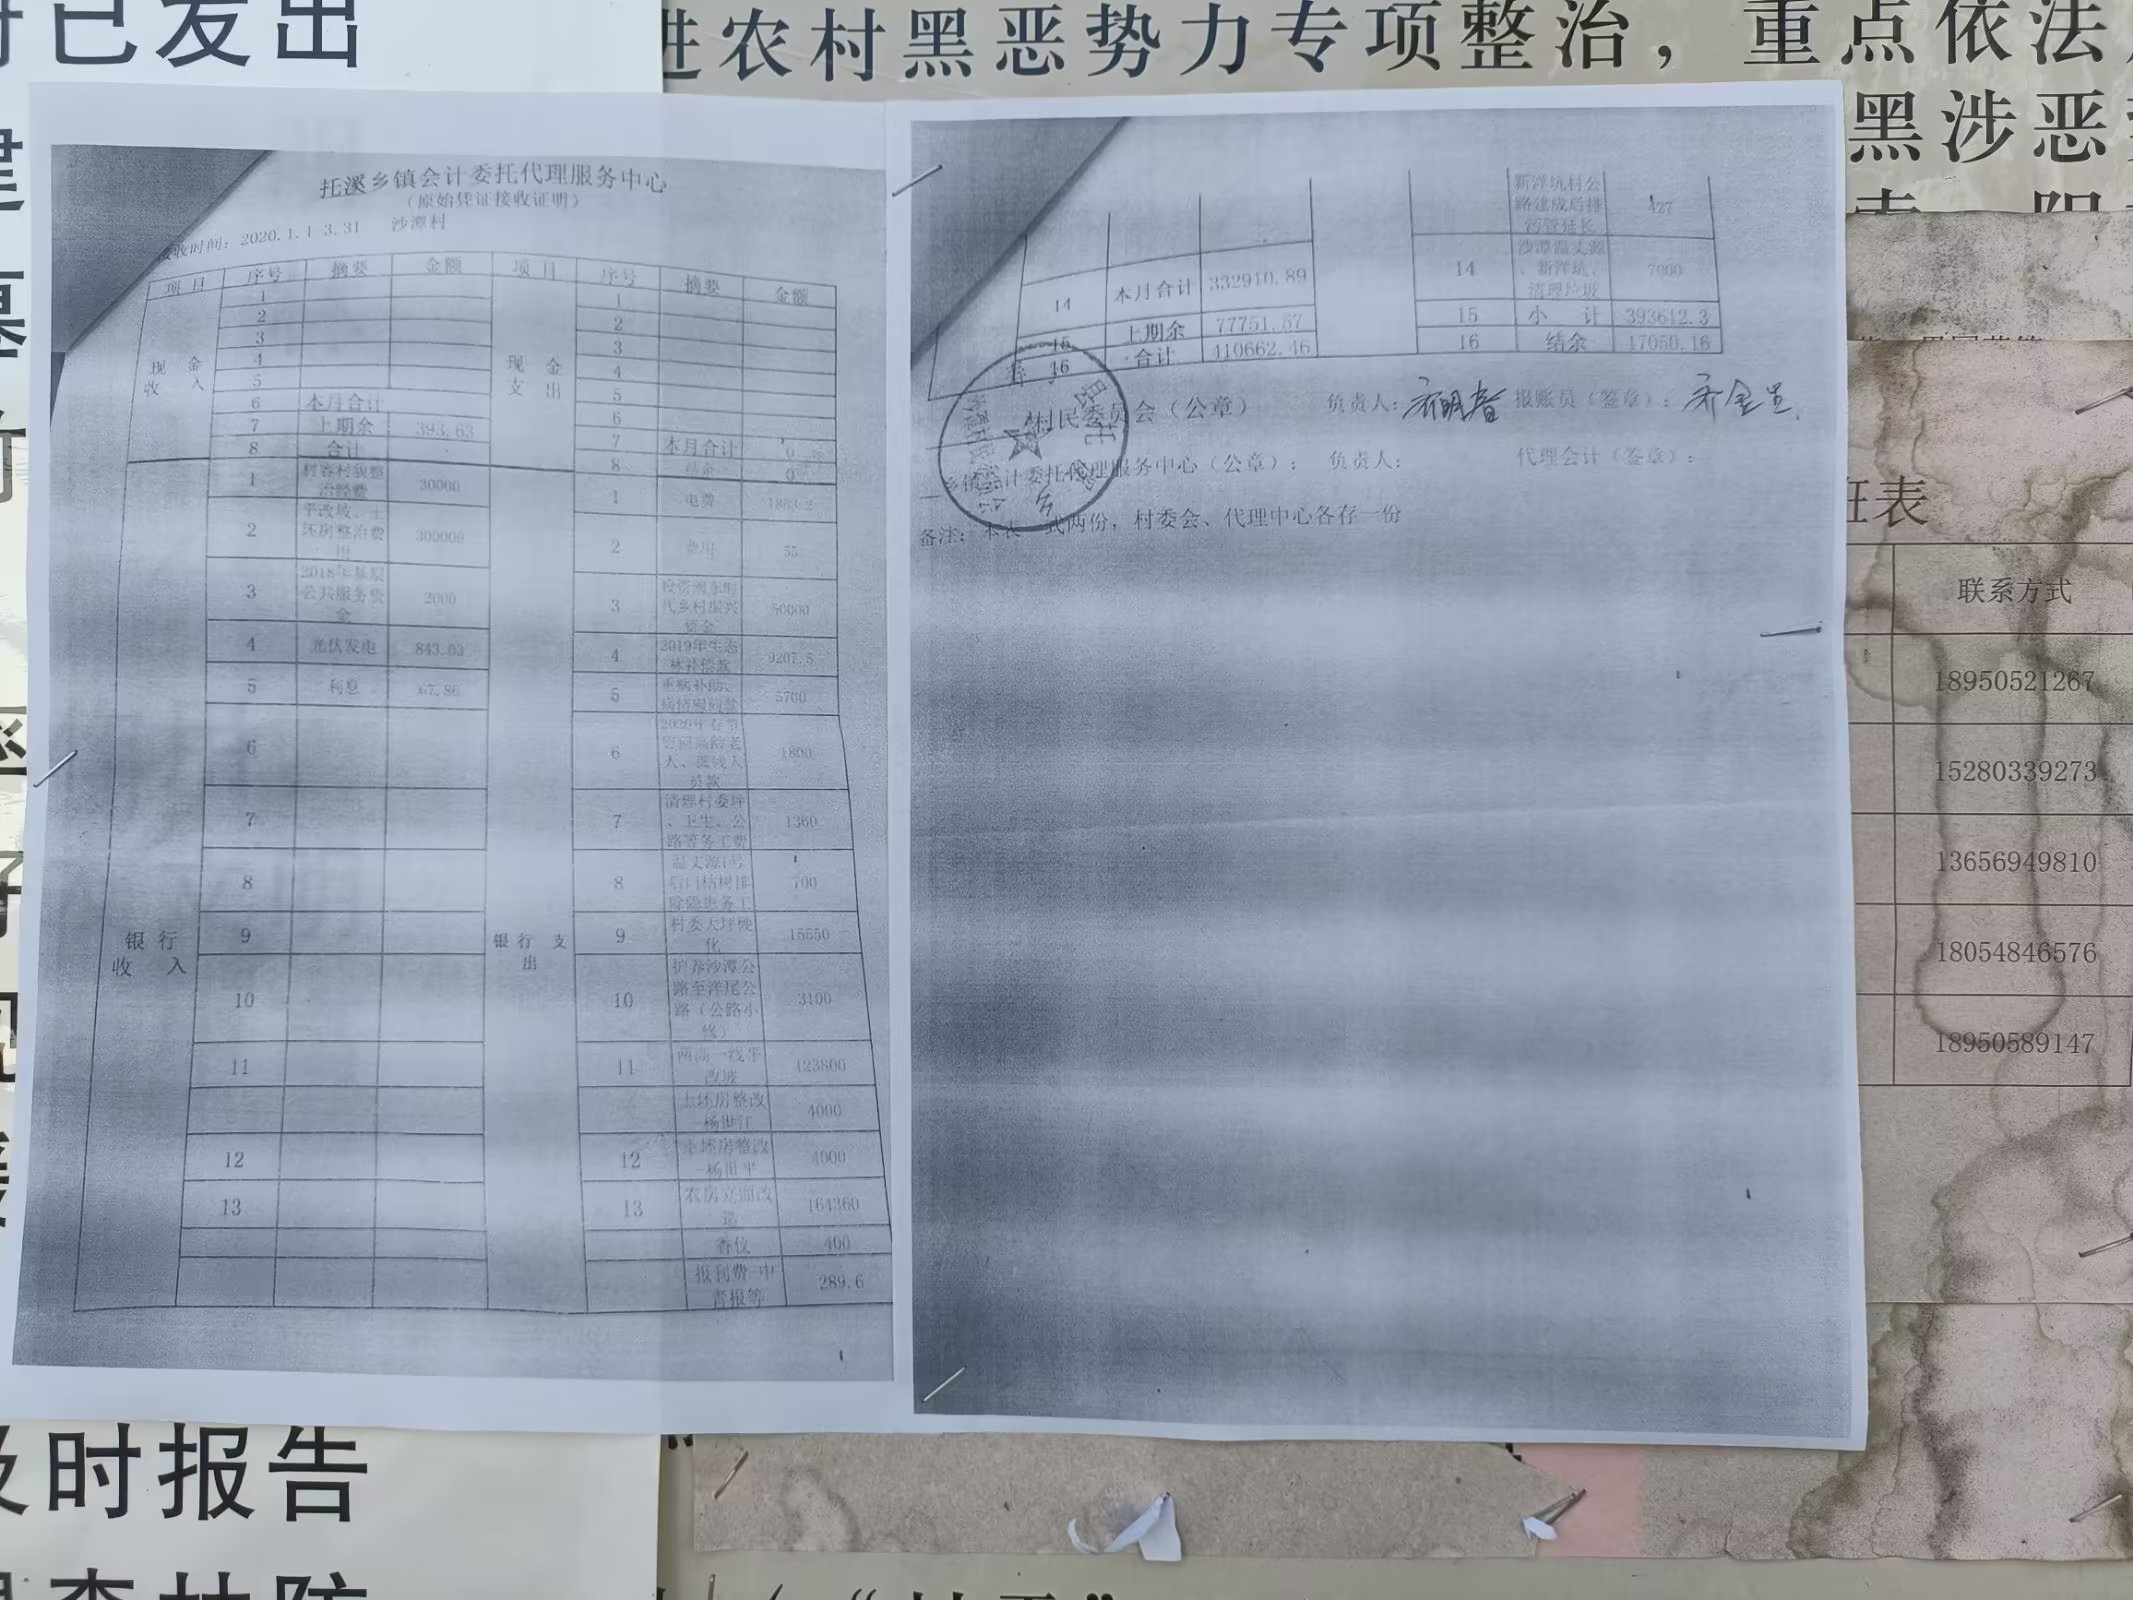 将已发出
进农村黑恶势力专项整治，重点依法
黑涉恶
托溪乡镇会计委托代理服务中心
（原始凭证接收证明）
接收时间：2020.1.1-3.31 沙潭村
项目 序号 摘要 金额 项目 序号 摘要 金额
现金收入
1
2
3
4
5
6 本月合计
7 上期余 393.63
8 合计
现金支出
1
2
3
4
5
6
7 本月合计 0
8 结余 0
银行收入
1 村容村貌整治经费 30000
2 平改坡、土坯房整治费用 300000
3 2018年基层公共服务资金 2000
4 光伏发电 843.03
5 利息 67.86
6
7
8
9
10
11
12
13
银行支出
1 电费
2 费用 55
3 乡村振兴资金 50000
4 2019年生态林补偿款 9207.5
5 重病补助、 5700
6 2020年春节慰问高龄老人、 1800
7 清理村委坪、卫生、公路等务工费 1360
8 700
9 村委大坪硬化 15550
10 护养沙潭公路至洋尾公路（公路小修） 3100
11 两高一线平改坡 123800
土坯房整改-杨世江 4000
12 土坯房整改-杨世平 4000
13 农房立面改造 164360
香仪 400
报刊费-中青报等 289.6
新洋坑村公路建成后排污管延长 427
14 本月合计 332910.89
15 上期余 77751.57
16 合计 410662.46
14 沙潭温丈源、新洋坑、清理垃圾 7000
15 小计 393612.3
16 结余 17050.16
村民委员会（公章） 负责人： 报账员（签章）：
乡镇会计委托代理服务中心（公章）： 负责人： 代理会计（签章）：
备注：本表一式两份，村委会、代理中心各存一份
班表
联系方式
18950521267
15280339273
13656949810
18054846576
18950589147
及时报告